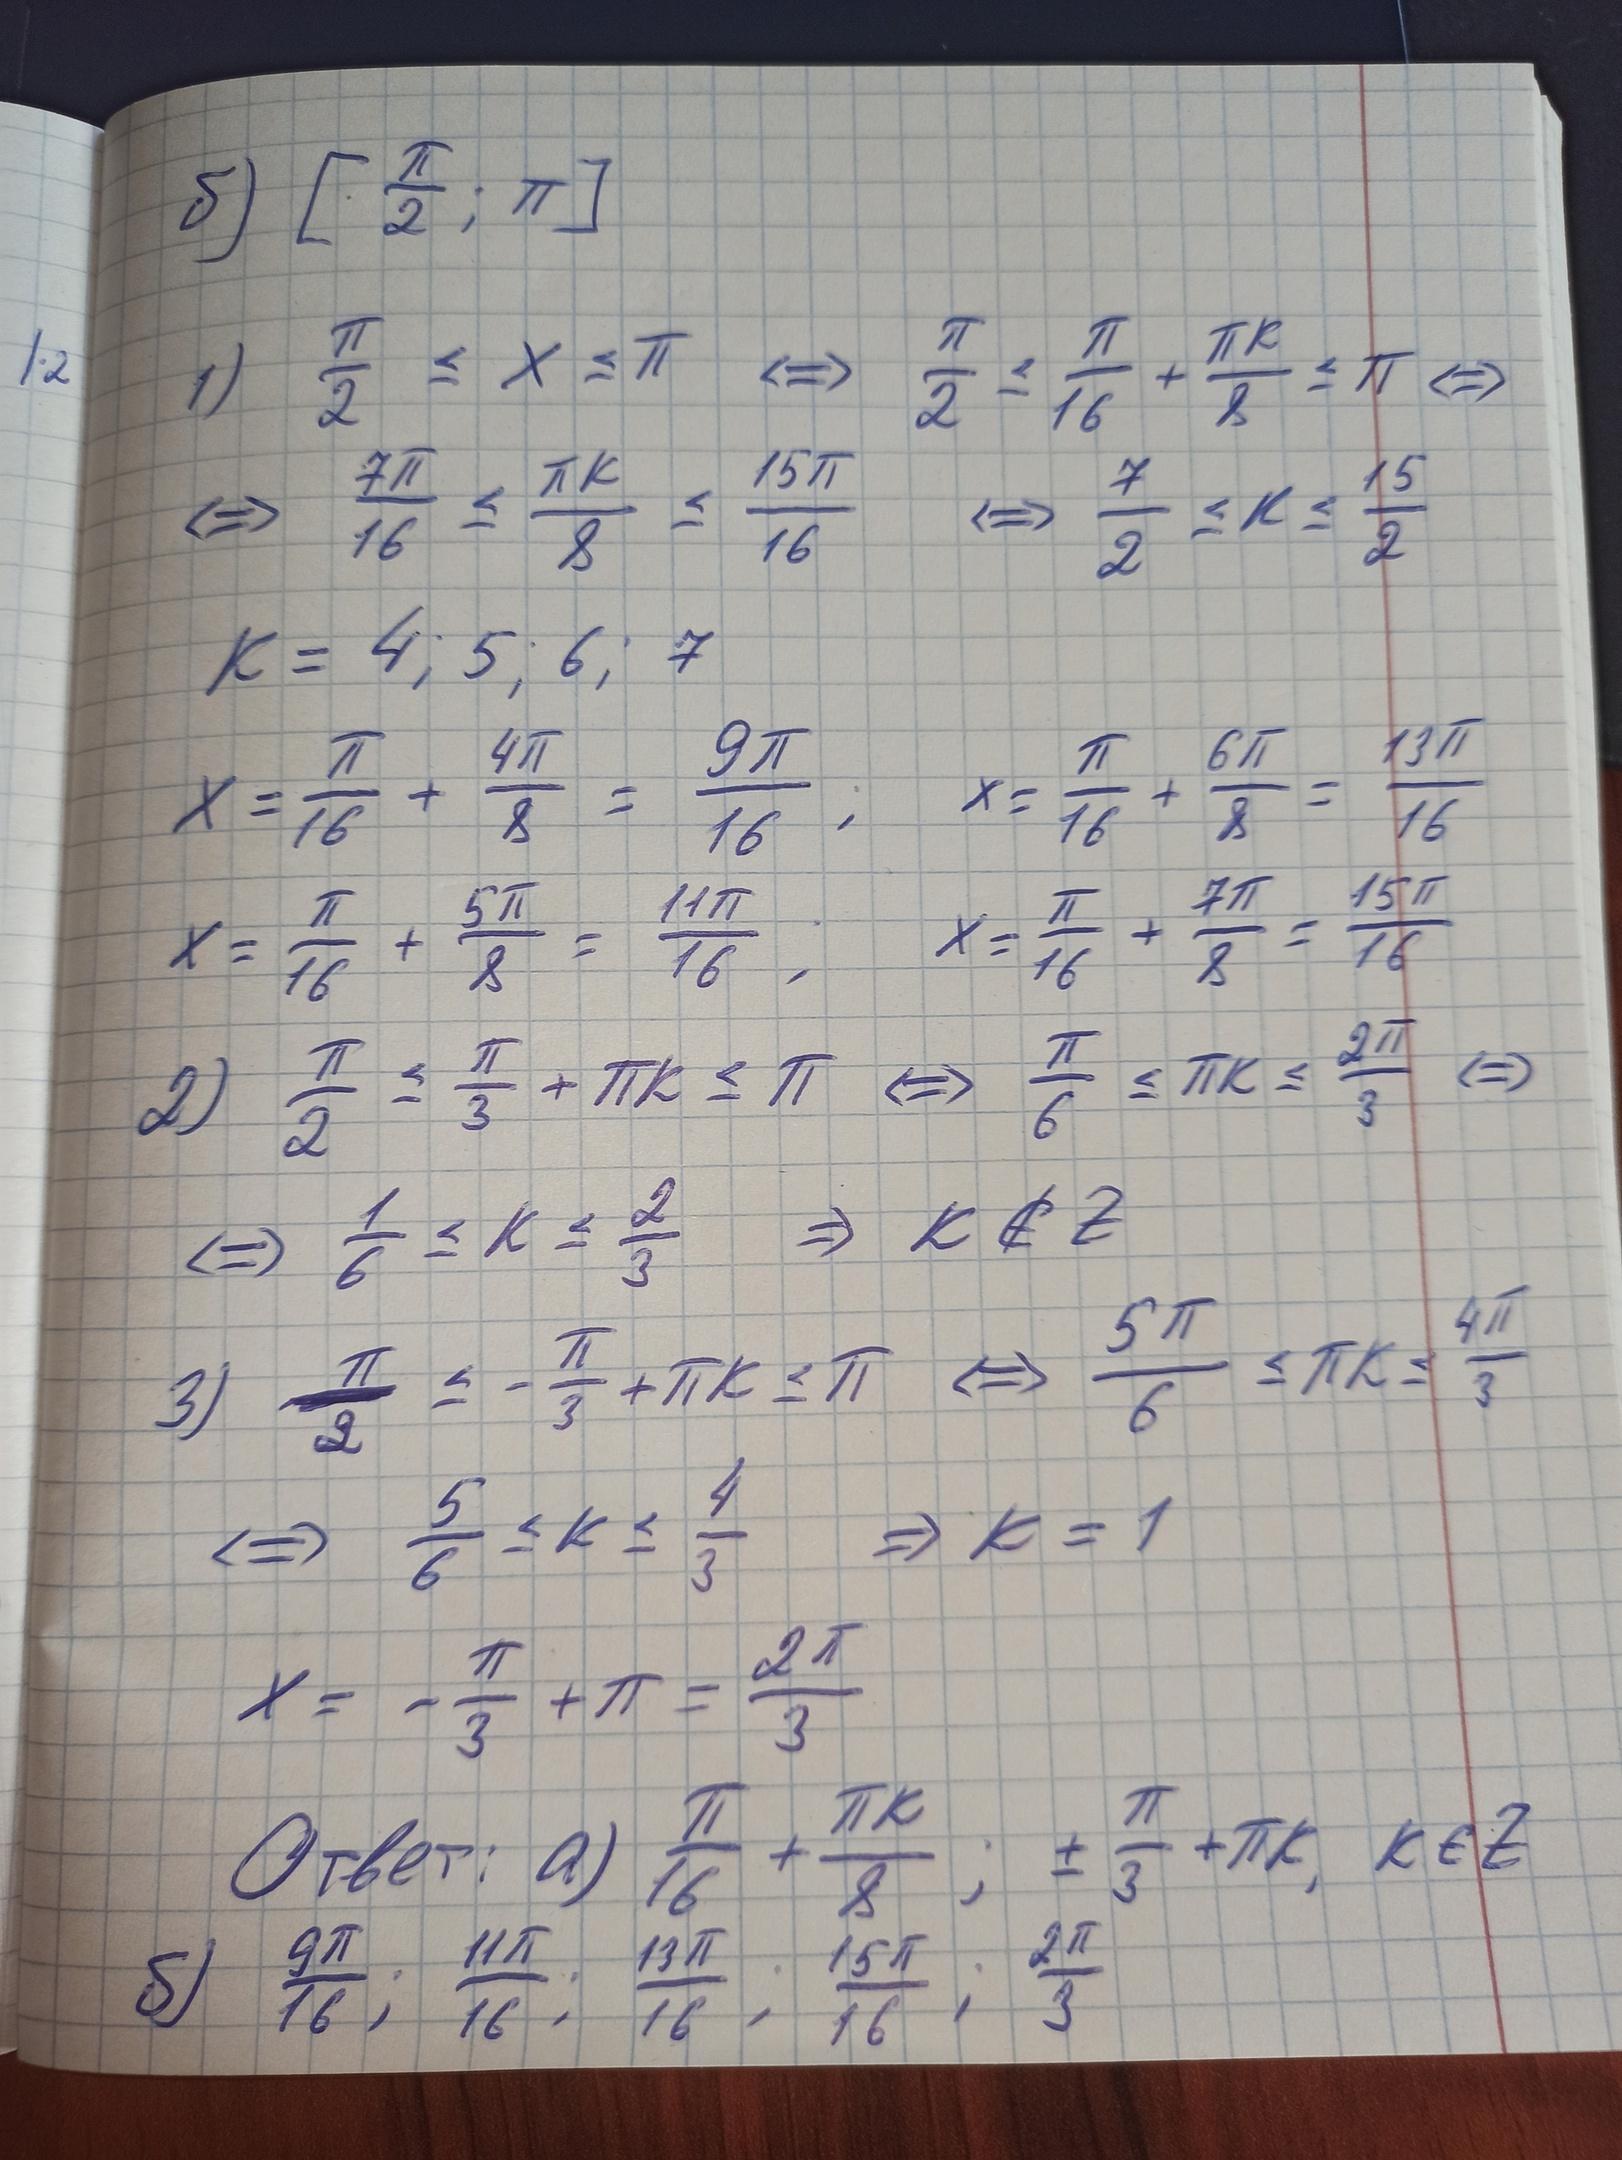 б) [π/2 ; π]
1·2
1) π/2 ≤ x ≤ π <=> π/2 ≤ π/16 + πk/8 ≤ π <=>
<=> 7π/16 ≤ πk/8 ≤ 15π/16 <=> 7/2 ≤ k ≤ 15/2
k = 4; 5; 6; 7
x = π/16 + 4π/8 = 9π/16 ; x = π/16 + 6π/8 = 13π/16
x = π/16 + 5π/8 = 11π/16 ; x = π/16 + 7π/8 = 15π/16
2) π/2 ≤ π/3 + πk ≤ π <=> π/6 ≤ πk ≤ 2π/3 <=>
<=> 1/6 ≤ k ≤ 2/3 => k ∉ Z
3) π/2 ≤ -π/3 + πk ≤ π <=> 5π/6 ≤ πk ≤ 4π/3
<=> 5/6 ≤ k ≤ 4/3 => k = 1
x = -π/3 + π = 2π/3
Ответ: а) π/16 + πk/8 ; ± π/3 + πk, k ∈ Z
б) 9π/16 ; 11π/16 ; 13π/16 ; 15π/16 ; 2π/3